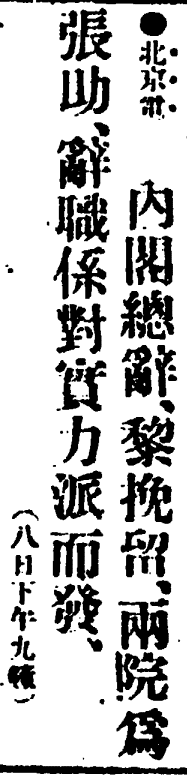 ●北京電　內閣總辭、黎挽留、兩院爲
張助、辭職係對實力派而發、
（八日下午九鐘）